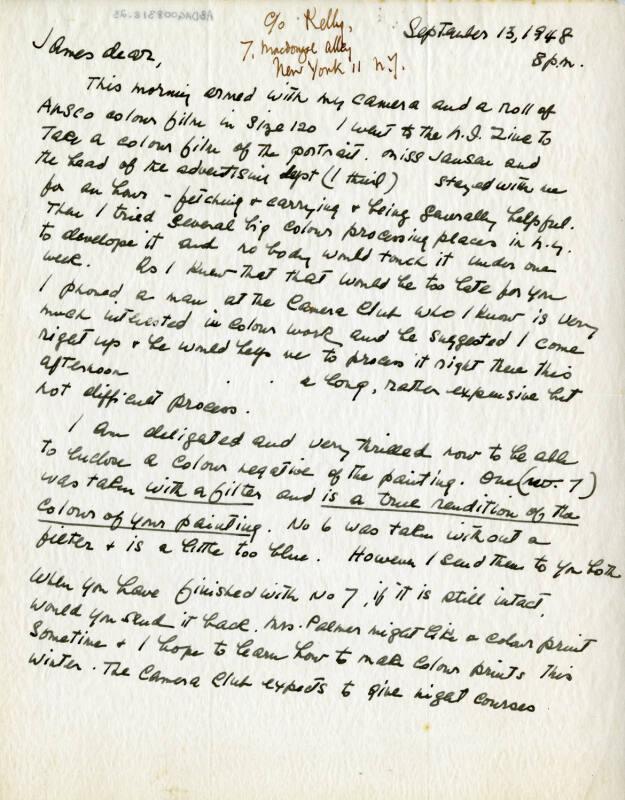 c/o Kelly,
7, Macdougal Alley
New York 11 N.Y.
September 13, 1948
8 p.m.
James dear,
This morning armed with my camera and a roll of
Ansco colour film in size 120 I went to the N.J. Zinc to
Take a colour film of the portrait. Miss Jansen and
the head of the advertising dept (I think) stayed with me
for an hour - fetching & carrying & being generally helpful.
Then I tried several big colour processing places in N.Y.
to develope it and nobody would touch it under one
week. As I knew that that would be too late for you
I phoned a man at the Camera Club who I know is very
much interested in colour work and he suggested I come
right up & he would help me to process it right there this
afternoon . . . a long, rather expensive but
not difficult process.
I am delighted and very thrilled now to be able
to enclose a colour negative of the painting. One (no. 7)
was taken with a filter and is a true rendition of the
colours of your painting. No 6 was taken without a
filter & is a little too blue. However I send them to you both
When you have finished with No 7, if it is still intact,
would you send it back. Mrs. Palmer might like a colour print
Sometime & I hope to learn how to make colour prints this
winter. The Camera Club expects to give night courses